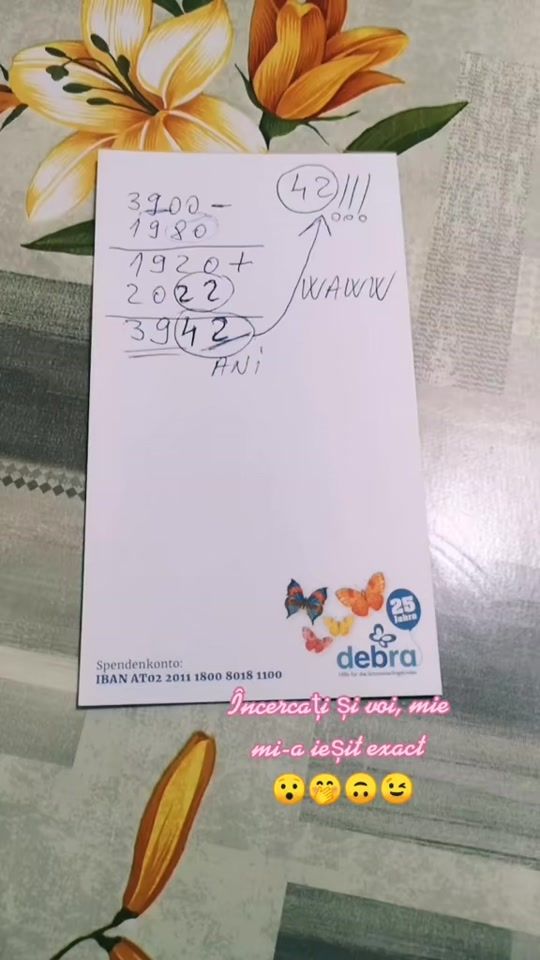 3900 -
1980
1920 +
2022
3942
ANi
42!!!
WAWW
25
Jahre
debra
Hilfe für die Schmetterlingskinder
Spendenkonto:
IBAN AT02 2011 1800 8018 1100
Încercați și voi, mie
mi-a ieșit exact
😯🤭🙃😉